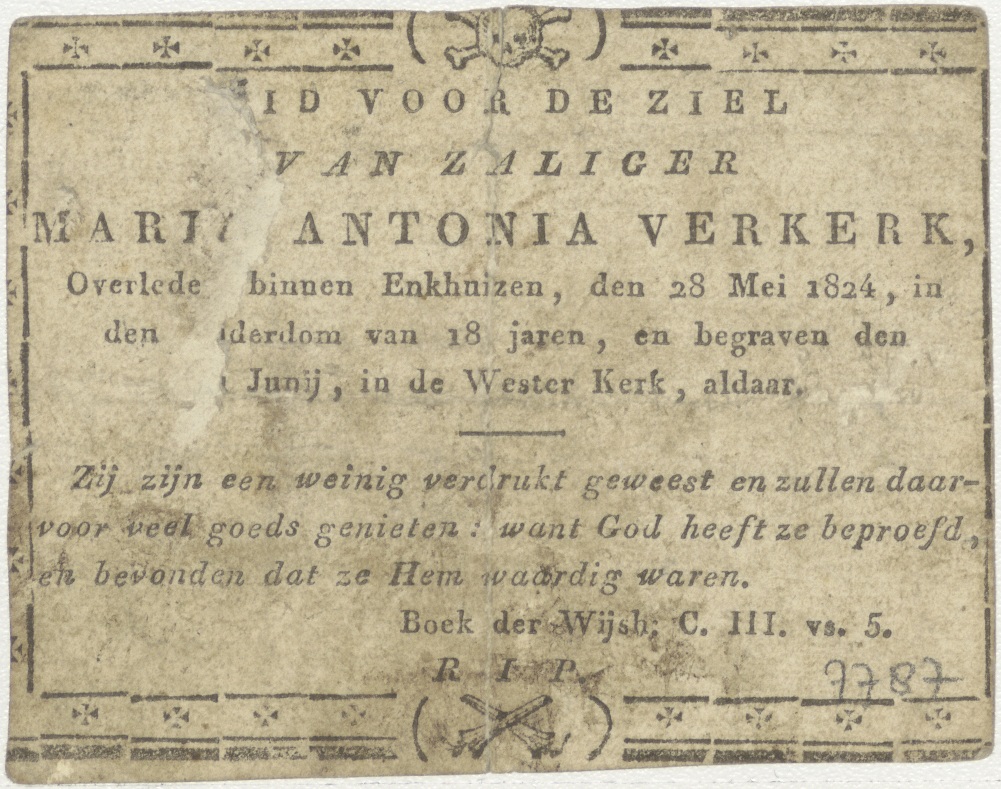 ID VOOR DE ZIEL
VAN ZALIGER
MARI ANTONIA VERKERK,
Overlede binnen Enkhuizen, den 28 Mei 1824, in
den derdom van 18 jaren, en begraven den
Junij, in de Wester Kerk, aldaar.
Zij zijn een weinig verdrukt geweest en zullen daar-
voor veel goeds genieten: want God heeft ze beproefd,
en bevonden dat ze Hem waardig waren.
Boek der Wijsh: C. III. vs. 5.
R I P.
7787